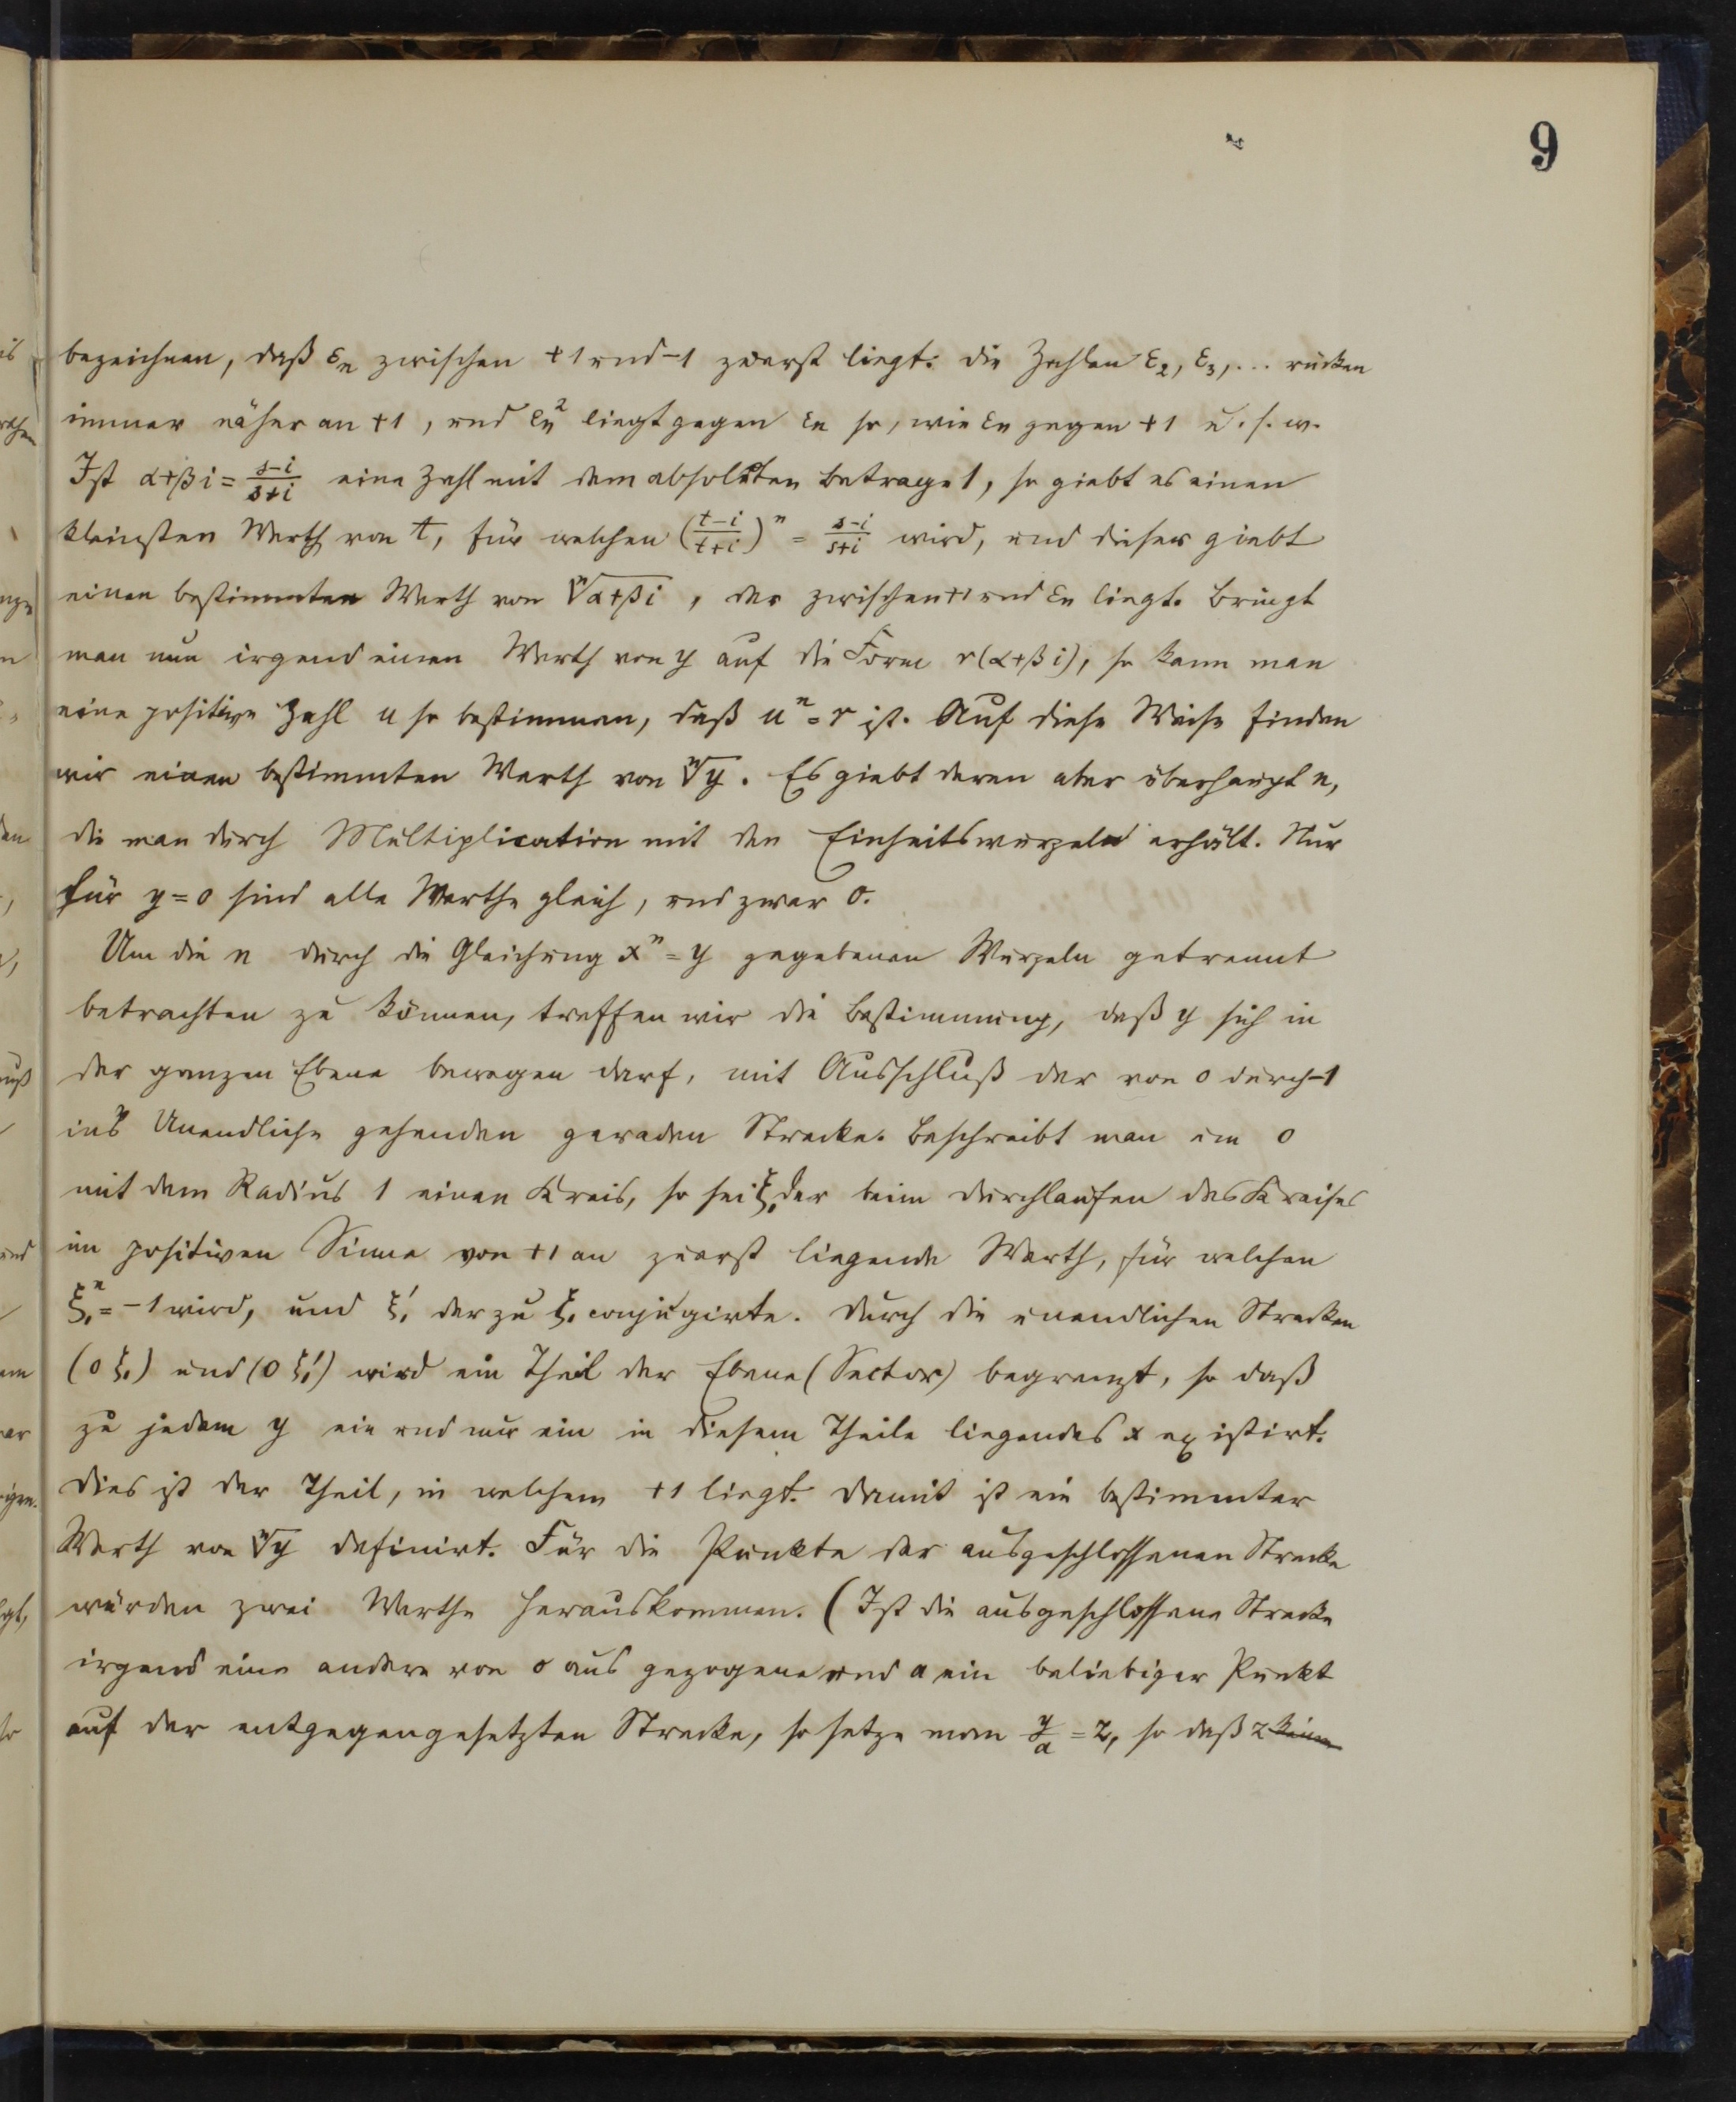 9
bezeichnen, daß εₙ zwischen +1 und -1 zuerst liegt: die Zahlen ε₂, ε₃, ... rücken
immer näher an +1, und εₙ² liegt gegen εₙ so, wie εₙ gegen +1 u. s. w.
Ist α+βi = (s-i)/(s+i) eine Zahl mit dem absoluten Betrage 1, so giebt es einen
kleinsten Werth von t, für welchen ((t-i)/(t+i))ⁿ = (s-i)/(s+i) wird, und dieser giebt
einen bestimmten Werth von ⁿ√(α+βi), der zwischen +1 und εₙ liegt. Bringt
man nun irgend einen Werth von y auf die Form r(α+βi), so kann man
eine positive Zahl u so bestimmen, daß uⁿ = r ist. Auf diese Weise finden
wir einen bestimmten Werth von ⁿ√y. Es giebt deren aber überhaupt n,
die man durch Multiplication mit den Einheitswurzeln erhält. Nur
für y = 0 sind alle Werthe gleich, und zwar 0.
Um die n durch die Gleichung xⁿ = y gegebenen Wurzeln getrennt
betrachten zu können, treffen wir die Bestimmung, daß y sich in
der ganzen Ebene bewegen darf, mit Ausschluß der von 0 durch -1
in's Unendliche gehenden geraden Strecke. Beschreibt man um 0
mit dem Radius 1 einen Kreis, so sei ξ₁ der beim Durchlaufen des Kreises
im positiven Sinne von +1 an zuerst liegende Werth, für welchen
ξ₁ⁿ = -1 wird, und ξ₁' der zu ξ₁ conjugirte. Durch die unendlichen Strecken
(0 ξ₁) und (0 ξ₁') wird ein Theil der Ebene (Sector) begrenzt, so daß
zu jedem y ein und nur ein in diesem Theile liegendes x existirt.
Dies ist der Theil, in welchem +1 liegt. Damit ist ein bestimmter
Werth von ⁿ√y definirt. Für die Punkte der ausgeschlossenen Strecke
würden zwei Werthe herauskommen. (Ist die ausgeschlossene Strecke
irgend eine andere von 0 aus gezogene und a ein beliebiger Punkt
auf der entgegengesetzten Strecke, so setze man y/a = z, so daß z